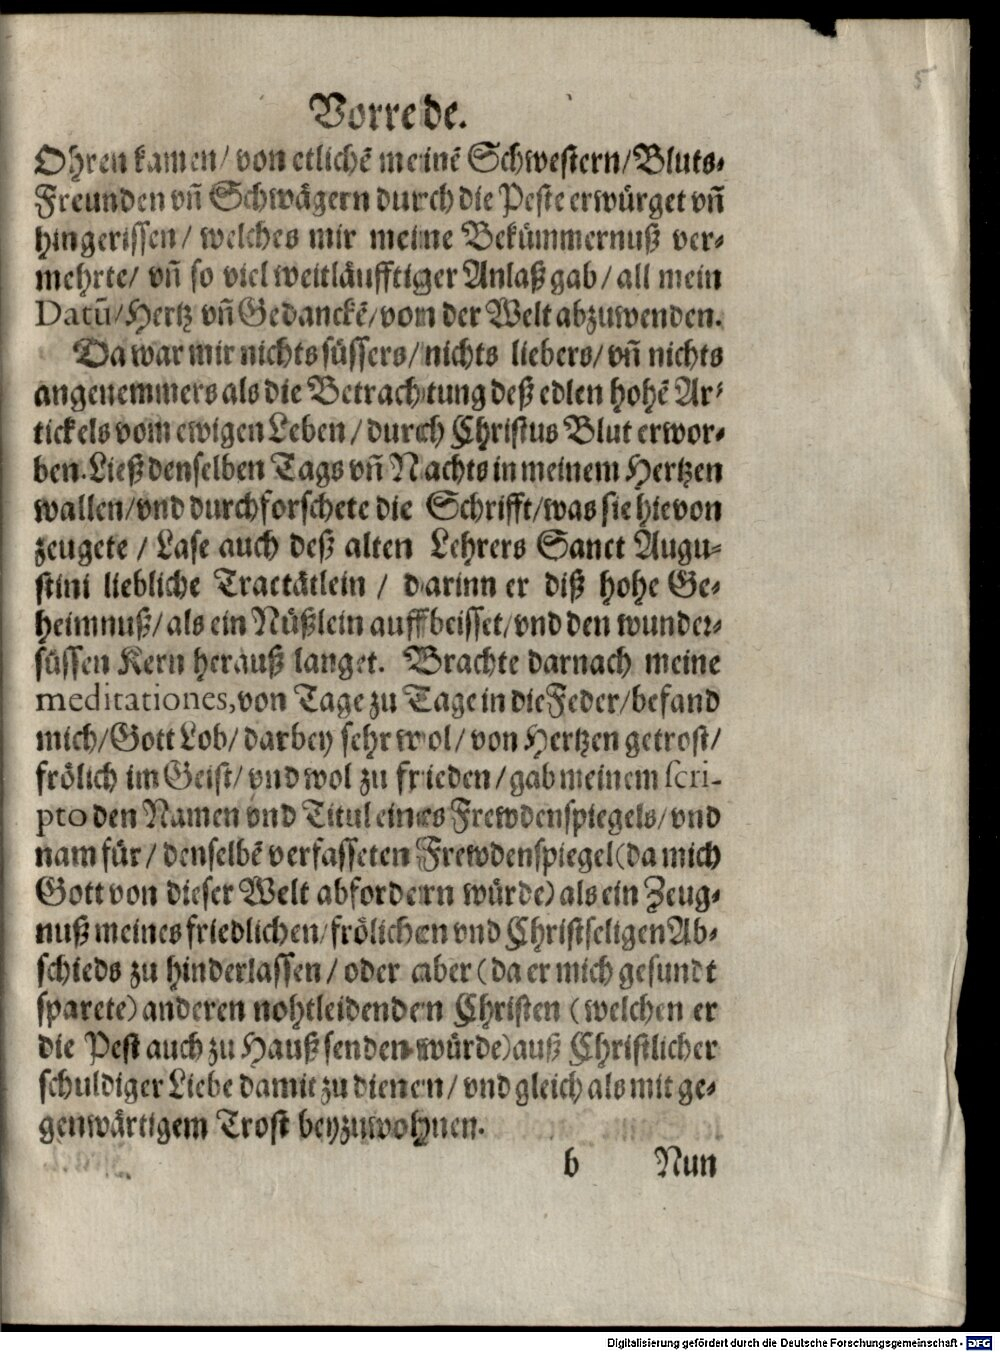 5
Vorrede.
Ohren kamen/ von etlichẽ meinẽ Schwestern/ Bluts-
Freunden vñ Schwägern durch die Peste erwürget vñ
hingerissen/ welches mir meine Bekümmernuß ver-
mehrte/ vñ so viel weitläufftiger Anlaß gab/ all mein
Datũ/ Hertz vñ Gedanckẽ/ vom der Welt abzuwenden.
Da war mir nichts süssers/ nichts liebers/ vñ nichts
angenemmers als die Betrachtung deß edlen hohẽ Ar-
tickels vom ewigen Leben/ durch Christus Blut erwor-
ben. Ließ denselben Tags vñ Nachts in meinem Hertzen
wallen/ vnd durchforschete die Schrifft/ was sie hievon
zeugete/ Lase auch deß alten Lehrers Sanct Augu-
stini liebliche Tractätlein/ darinn er diß hohe Ge-
heimnuß/ als ein Nüßlein auffbeisset/ vnd den wunder-
süssen Kern herauß langet. Brachte darnach meine
meditationes, von Tage zu Tage in die Feder/ befand
mich/ Gott Lob/ darbey sehr wol/ von Hertzen getrost/
frölich im Geist/ vnd wol zu frieden/ gab meinem scri-
pto den Namen vnd Titul eines Frewdenspiegels/ vnd
nam für/ denselbẽ verfasseten Frewdenspiegel (da mich
Gott von dieser Welt abfordern würde) als ein Zeug-
nuß meines friedlichen/ frölichen vnd Christseligen Ab-
schieds zu hinderlassen/ oder aber (da er mich gesundt
sparete) anderen nohtleidenden Christen (welchen er
die Pest auch zu Hauß senden würde) auß Christlicher
schuldiger Liebe damit zu dienen/ vnd gleich als mit ge-
genwärtigem Trost beyzuwohnen.
b Nun
Digitalisierung gefördert durch die Deutsche Forschungsgemeinschaft - DFG